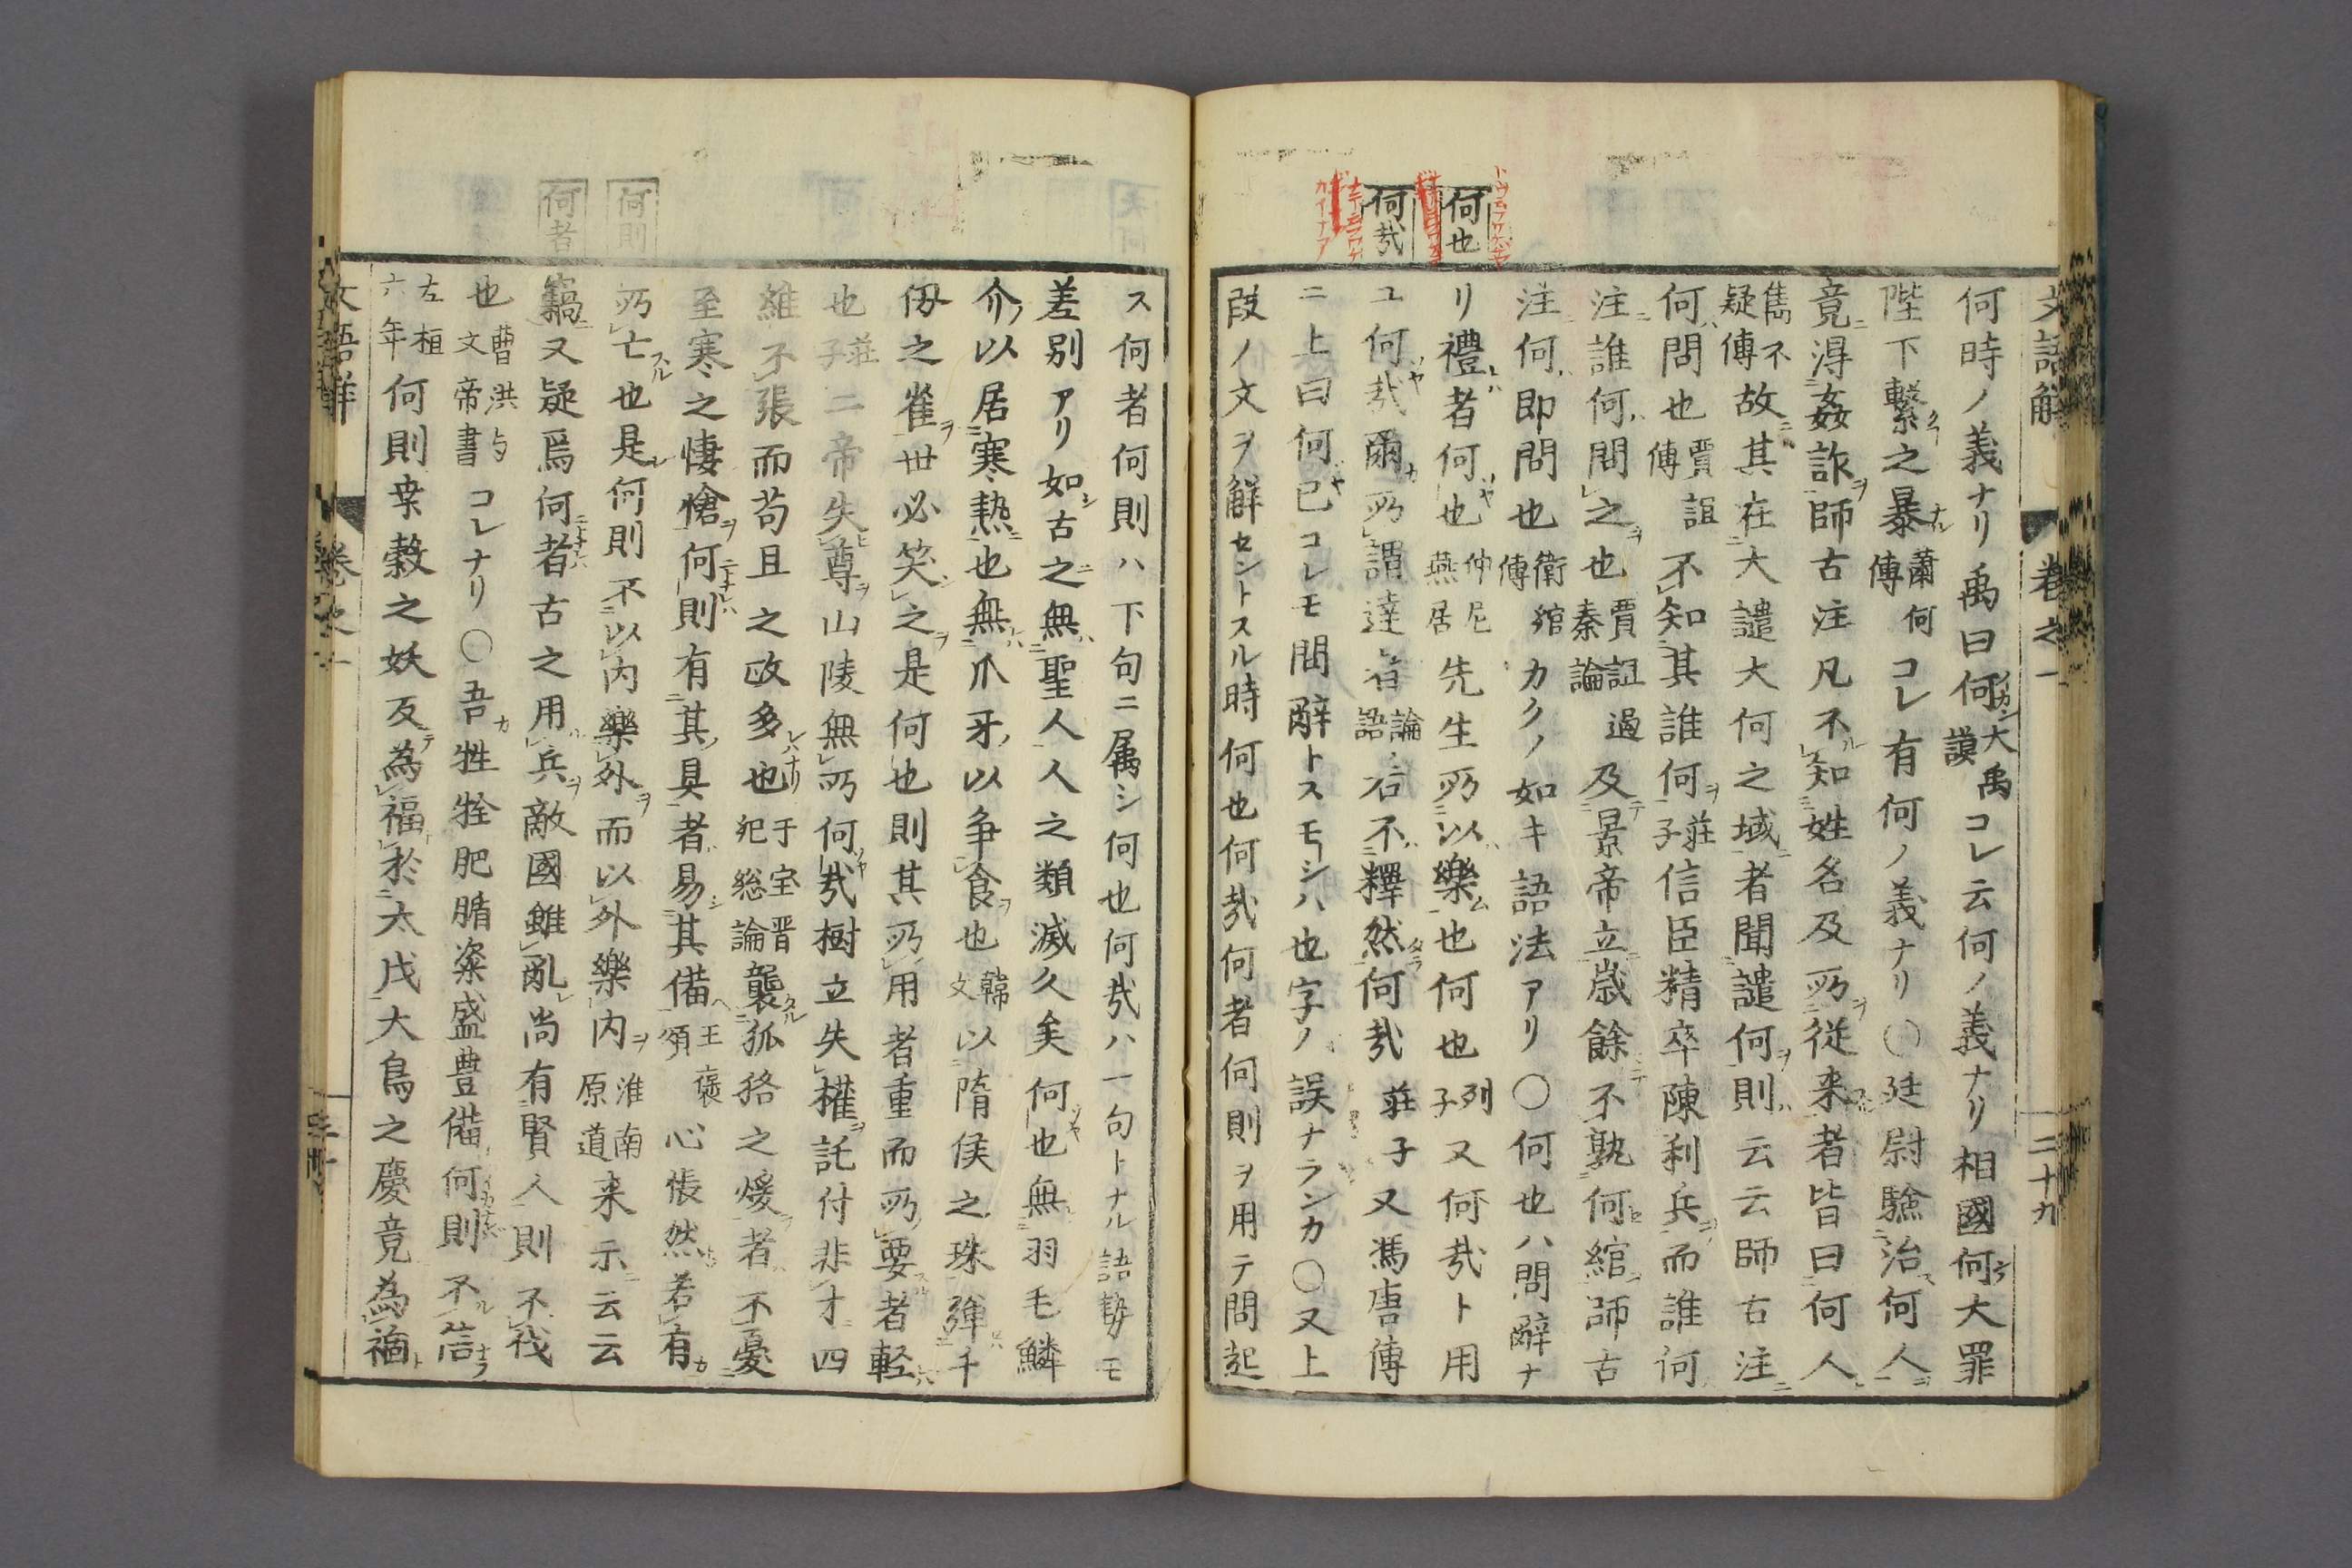 文語解 卷之一 二十九
何也
何哉
何時ノ義ナリ禹曰何大禹謨コレ云何ノ義ナリ相國何大罪
陛下繫之暴蕭何傳コレ有何ノ義ナリ〇廷尉驗治何人
竟淂姦詐師古注凡不知姓名及所從来者皆曰何人
雋不疑傳故其在大譴大何之域者聞譴何則云云師古注
何問也賈誼傳不知其誰何莊子信臣精卒陳利兵而誰何
注誰何問之也賈誼過秦論及景帝立歲餘不孰何綰師古
注何即問也衛綰傳カクノ如キ語法アリ〇何也ハ問辭ナ
リ禮者何也仲尼燕居先生所以樂也何也列子又何哉ト用
ユ何哉爾所謂達者論語若不釋然何哉莊子又馮唐傳
ニ上曰何已コレモ問辭トスモシハ也字ノ誤ナランカ〇又上
段ノ文ヲ解セントスル時何也何哉何者何則ヲ用テ問起
何則
何者
ス何者何則ハ下句ニ属シ何也何哉ハ一句トナル語勢モ
差别アリ如古之無聖人人之類滅久矣何也無羽毛鱗
介以居寒熱也無爪牙以争食也韓文以隋侯之珠彈千
仭之雀世必笑之是何也則其所用者重而所要者軽
也莊子二帝失尊山陵無所何哉樹立失權託付非才四
維不張而苟且之政多也于宝晋紀総論襲狐狢之煖者不憂
至寒之悽愴何則有其具者易其備王襃頌心悵然若有
所亡也是何則不以内樂外而以外樂内淮南原道来示云云
竊又疑焉何者古之用兵敵國雖亂尚有賢人則不伐
也曹洪与文帝書コレナリ〇吾牲牷肥腯粢盛豊備何則不信
左桓六年何則桒穀之妖反為福於太戊大鳥之慶竟為禍